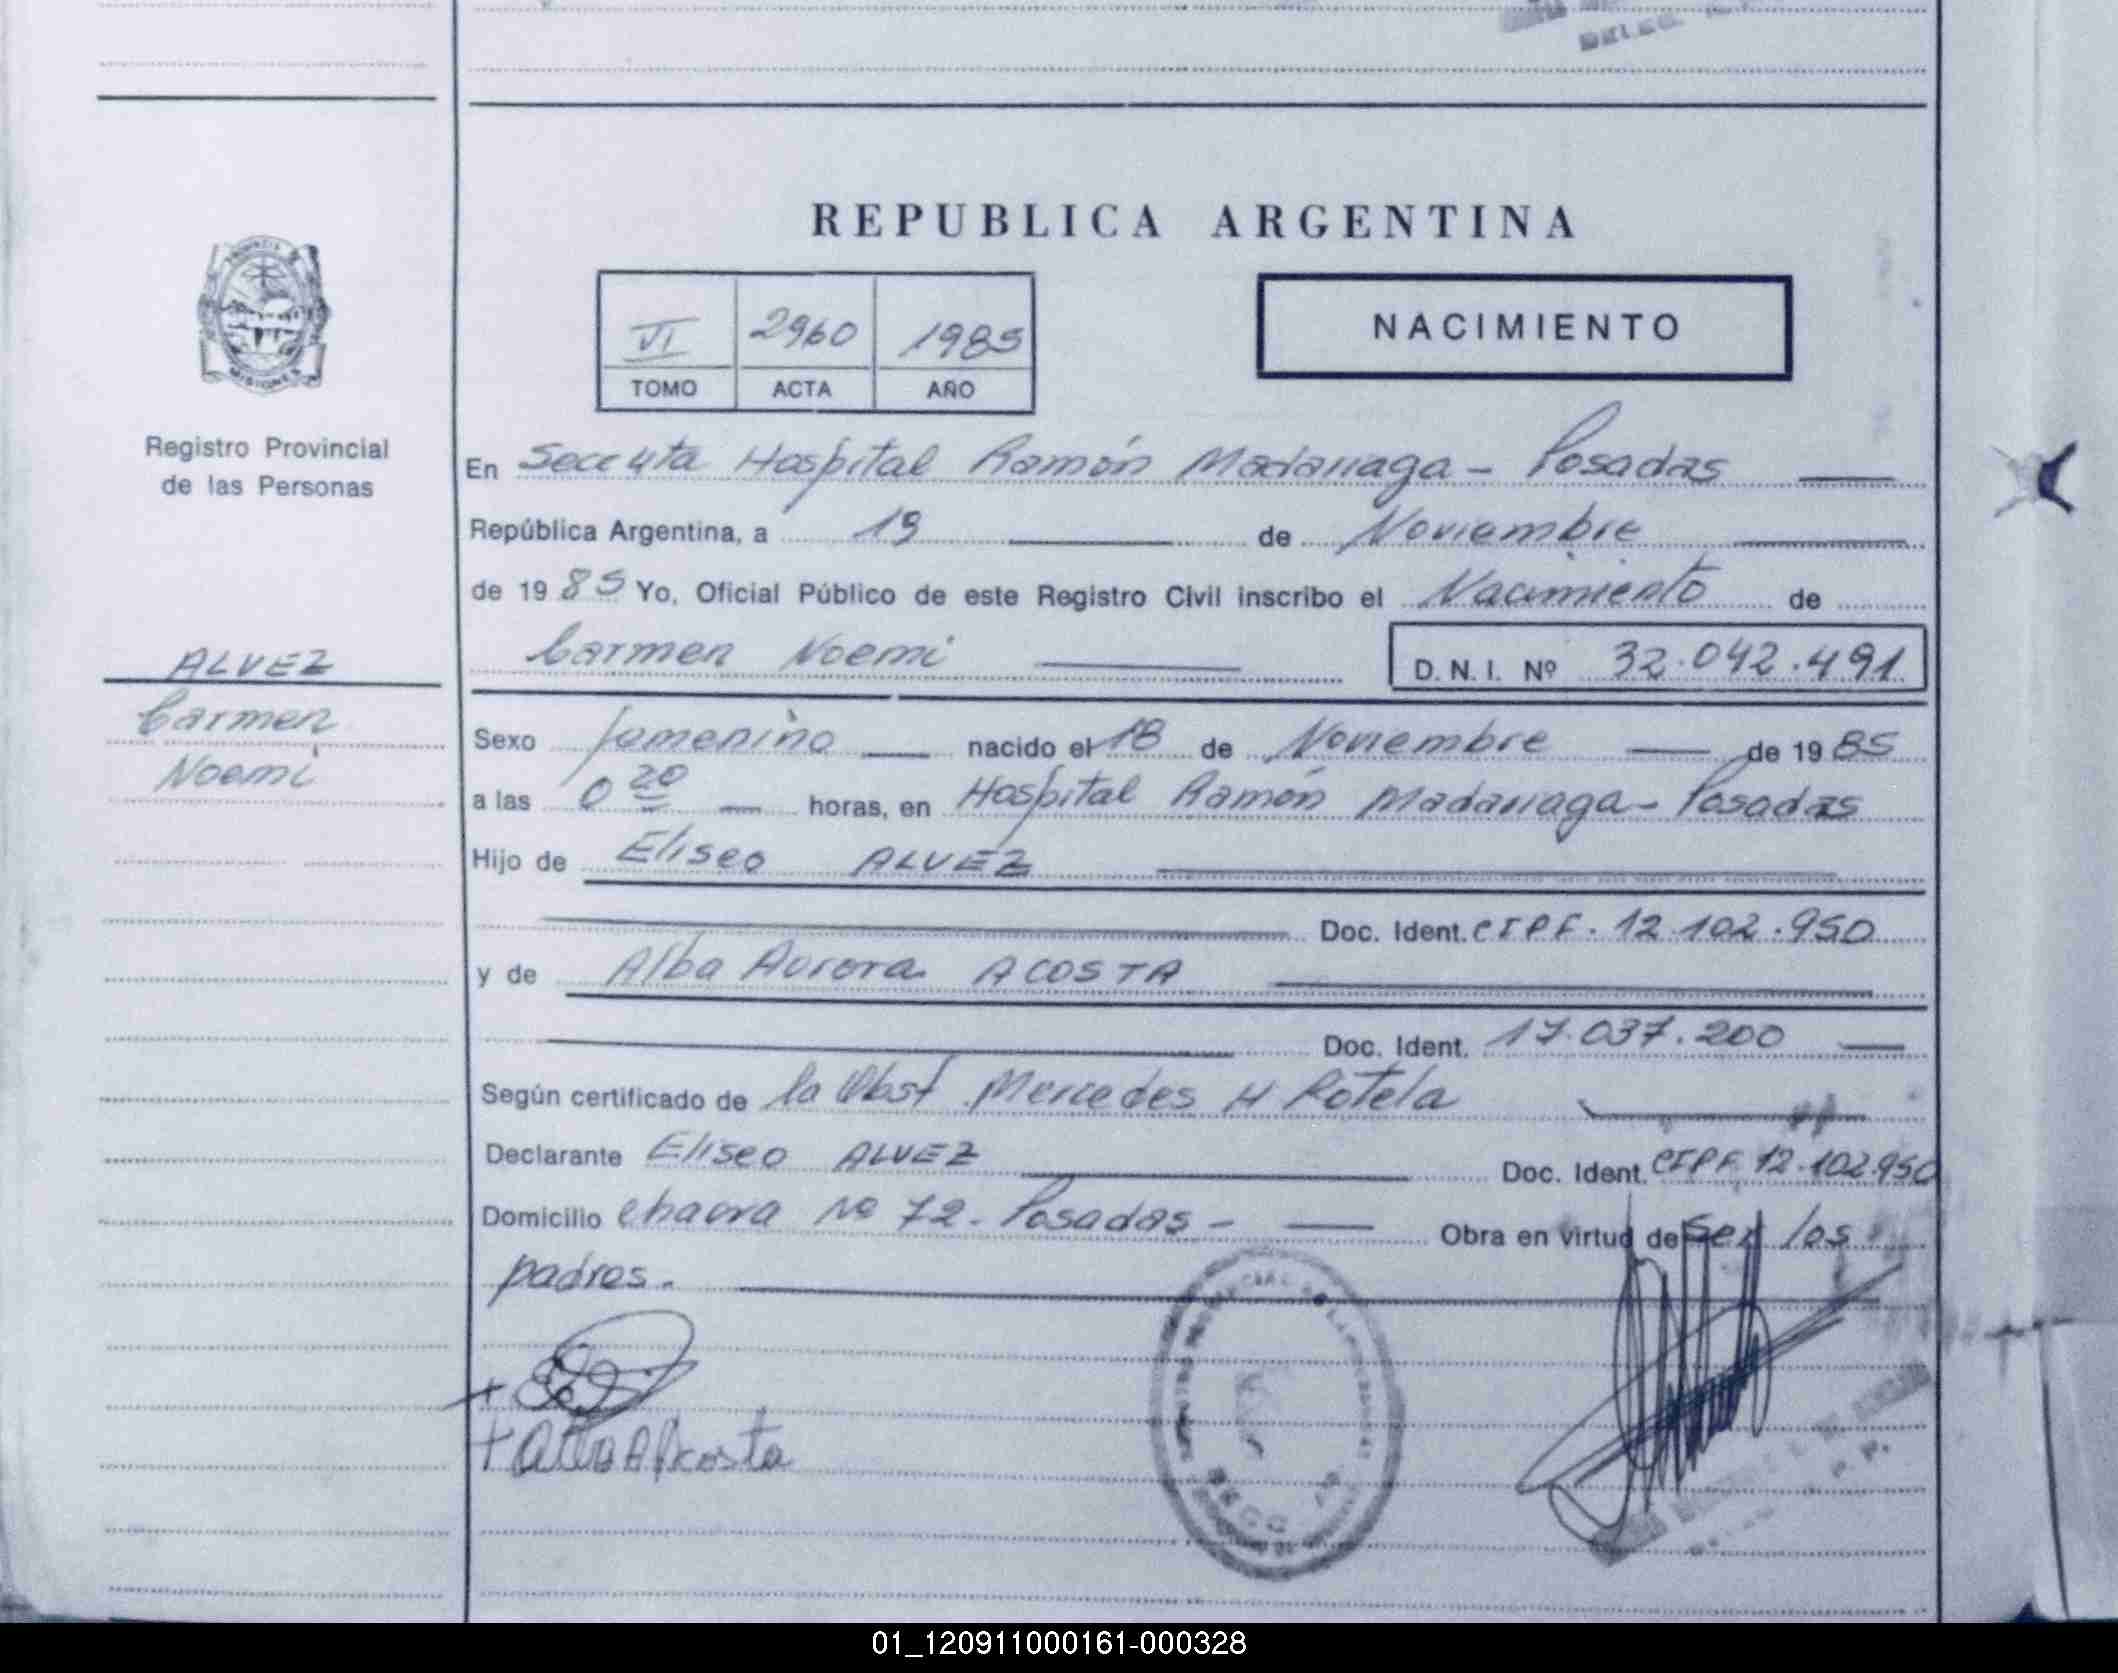 REPUBLICA ARGENTINA
VI 2960 1985
TOMO ACTA AÑO
NACIMIENTO
MISIONES
Registro Provincial
de las Personas
ALVEZ
Carmen
Noemi
En Seccta Hospital Ramón Madariaga - Posadas
República Argentina, a 19 de Noviembre
de 1985 Yo, Oficial Público de este Registro Civil inscribo el Nacimiento de
Carmen Noemi D. N. I. Nº 32.042.491
Sexo femenino nacido el 18 de Noviembre de 1985
a las 0 20 horas, en Hospital Ramón Madariaga - Posadas
Hijo de Eliseo ALVEZ
Doc. Ident. CIPF. 12.102.950
y de Alba Aurora ACOSTA
Doc. Ident. 17.037.200
Según certificado de la Obst Mercedes H Rotela
Declarante Eliseo ALVEZ Doc. Ident. CIPF 12.102.950
Domicilio chacra Nº 72 - Posadas - Obra en virtud de ser los
padres.
Alba A Acosta
01_120911000161-000328